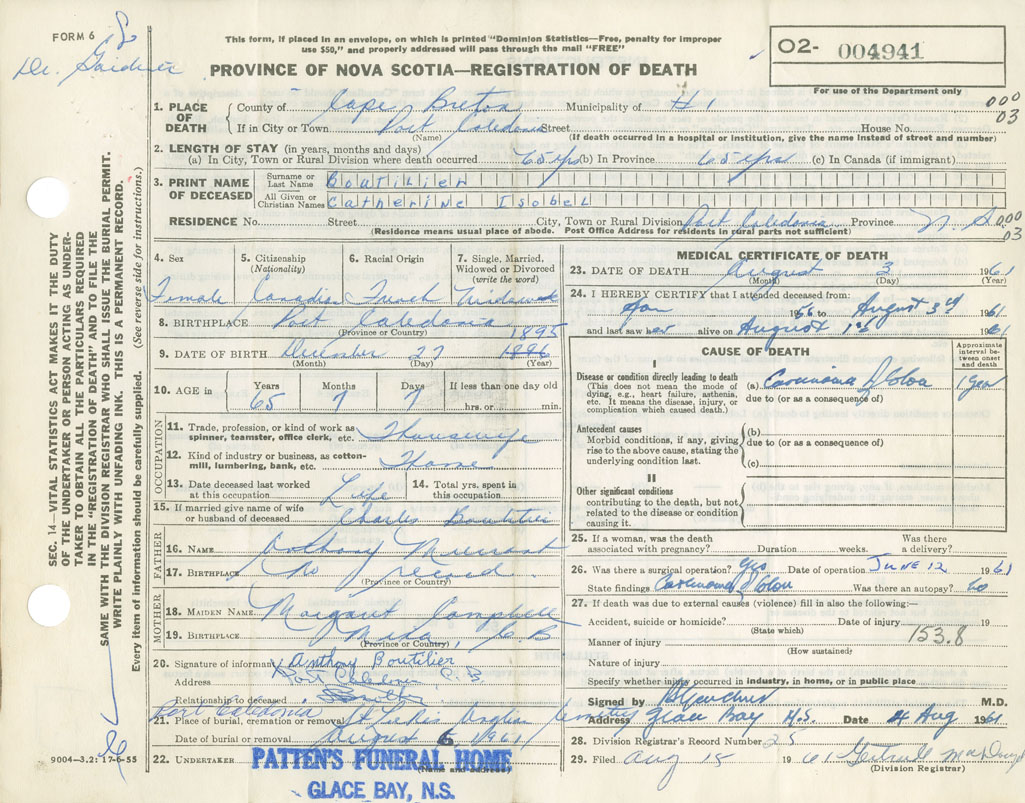 FORM 6
This form, if placed in an envelope, on which is printed "Dominion Statistics—Free, penalty for improper
use $50," and properly addressed will pass through the mail "FREE"
O2- 004941
For use of the Department only
PROVINCE OF NOVA SCOTIA—REGISTRATION OF DEATH
000
03
1. PLACE OF DEATH
County of Cape Breton Municipality of #1
If in City or Town Port Caledonia Street House No.
(Name) (If death occurred in a hospital or institution, give the name instead of street and number)
2. LENGTH OF STAY (in years, months and days)
(a) In City, Town or Rural Division where death occurred 65 yrs (b) In Province 65 yrs (c) In Canada (if immigrant)
3. PRINT NAME OF DECEASED
Surname or Last Name Boutilier
All Given or Christian Names Catherine Isobel
RESIDENCE No. Street City, Town or Rural Division Port Caledonia Province N.S.
000
03
(Residence means usual place of abode. Post Office Address for residents in rural parts not sufficient)
SEC. 14—VITAL STATISTICS ACT MAKES IT THE DUTY
OF THE UNDERTAKER OR PERSON ACTING AS UNDER-
TAKER TO OBTAIN ALL THE PARTICULARS REQUIRED
IN THE "REGISTRATION OF DEATH" AND TO FILE THE
SAME WITH THE DIVISION REGISTRAR WHO SHALL ISSUE THE BURIAL PERMIT.
WRITE PLAINLY WITH UNFADING INK. THIS IS A PERMANENT RECORD.
Every item of information should be carefully supplied. (See reverse side for instructions.)
4. Sex Female
5. Citizenship (Nationality) Canadian
6. Racial Origin French
7. Single, Married, Widowed or Divorced (write the word) Widowed
8. BIRTHPLACE Port Caledonia
(Province or Country)
1895
9. DATE OF BIRTH December 27 1896
(Month) (Day) (Year)
10. AGE in Years 65 Months 7 Days 7 If less than one day old
hrs. or min.
OCCUPATION
11. Trade, profession, or kind of work as
spinner, teamster, office clerk, etc. Housewife
12. Kind of industry or business, as cotton-
mill, lumbering, bank, etc. Home
13. Date deceased last worked
at this occupation Life
14. Total yrs. spent in
this occupation
15. If married give name of wife
or husband of deceased Charles Boutilier
FATHER
16. NAME Anthony
17. BIRTHPLACE No record
(Province or Country)
MOTHER
18. MAIDEN NAME Margaret Campbell
19. BIRTHPLACE Mira, C B
(Province or Country)
20. Signature of informant Anthony Boutilier
Address Port Caledonia C. B
Relationship to deceased
Port Caledonia
21. Place of burial, cremation or removal St Lukes Anglican Cemetery
Date of burial or removal August 6 1961
22. UNDERTAKER PATTEN'S FUNERAL HOME
(Name and address)
GLACE BAY, N.S.
9004—3.2: 17-6-55
MEDICAL CERTIFICATE OF DEATH
23. DATE OF DEATH August 3 1961
(Month) (Day) (Year)
24. I HEREBY CERTIFY that I attended deceased from:
Jan 1956 to August 3rd 1961
and last saw her alive on August 1st 1961
CAUSE OF DEATH
Approximate interval between onset and death
I
Disease or condition directly leading to death
(This does not mean the mode of
dying, e.g., heart failure, asthenia,
etc. It means the disease, injury, or
complication which caused death.)
(a) Carcinoma of Colon 1 year
due to (or as a consequence of)
Antecedent causes
Morbid conditions, if any, giving
rise to the above cause, stating the
underlying condition last.
(b)
due to (or as a consequence of)
(c)
II
Other significant conditions
contributing to the death, but not
related to the disease or condition
causing it.
25. If a woman, was the death
associated with pregnancy? Duration weeks. Was there a delivery?
26. Was there a surgical operation? yes Date of operation June 12 1961
State findings Carcinoma of Colon Was there an autopsy? no
27. If death was due to external causes (violence) fill in also the following:—
Accident, suicide or homicide? Date of injury 19
(State which)
153.8
Manner of injury
(How sustained)
Nature of injury
Specify whether injury occurred in industry, in home, or in public place
Signed by M.D.
Address Glace Bay N.S. Date 4 Aug 1961
28. Division Registrar's Record Number 25
29. Filed Aug 15 1961 Gertrude
(Division Registrar)